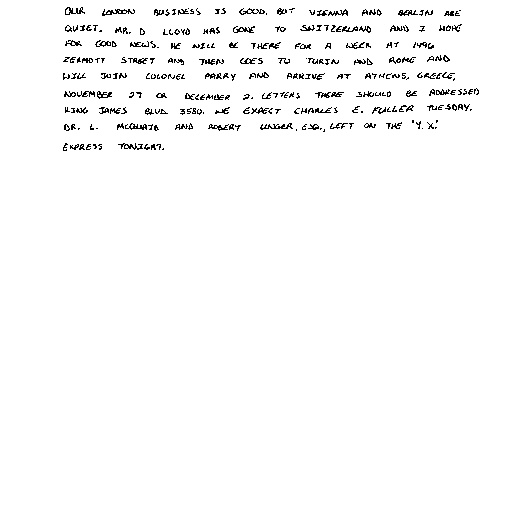 OUR LONDON BUSINESS IS GOOD, BUT VIENNA AND BERLIN ARE
QUIET. MR. D LLOYD HAS GONE TO SWITZERLAND AND I HOPE
FOR GOOD NEWS. HE WILL BE THERE FOR A WEEK AT 1496
ZERMOTT STREET AND THEN GOES TO TURIN AND ROME AND
WILL JOIN COLONEL PARRY AND ARRIVE AT ATHENS, GREECE,
NOVEMBER 27 OR DECEMBER 2. LETTERS THERE SHOULD BE ADDRESSED
KING JAMES BLVD. 3580. WE EXPECT CHARLES E. FULLER TUESDAY.
DR. L. MCQUAID AND ROBERT UNGER, ESQ., LEFT ON THE "Y.X."
EXPRESS TONIGHT.